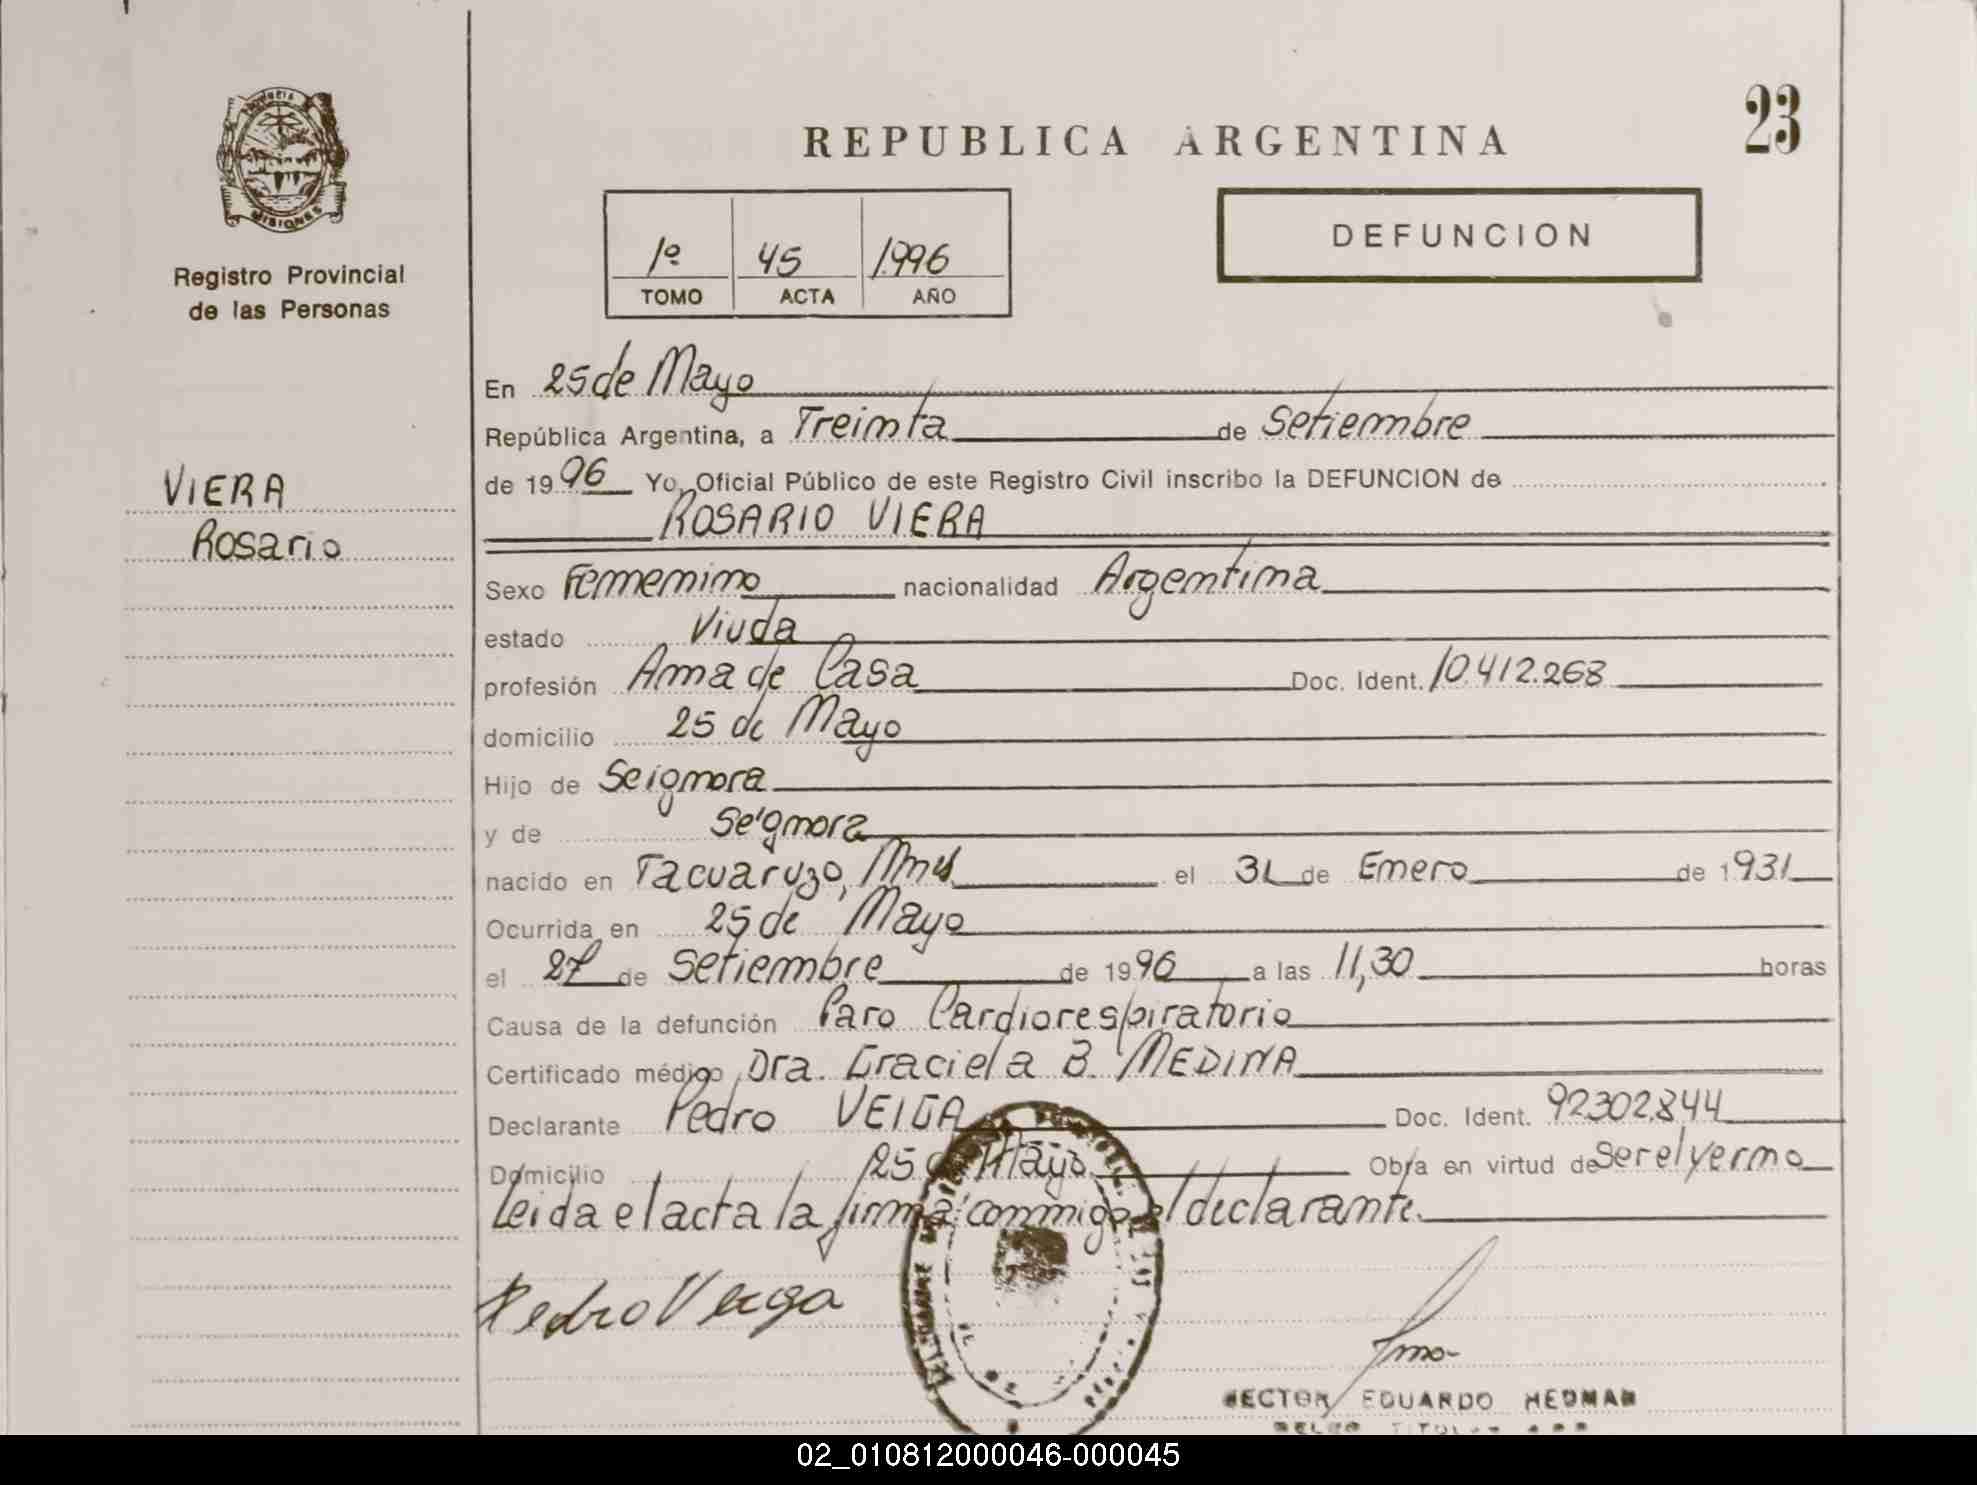 23
REPUBLICA ARGENTINA
PROVINCIA
MISIONES
Registro Provincial
de las Personas
1º 45 1996
TOMO ACTA AÑO
DEFUNCION
VIERA
Rosario
En 25 de Mayo
República Argentina, a Treinta de Setiembre
de 1996 Yo, Oficial Público de este Registro Civil inscribo la DEFUNCION de
ROSARIO VIERA
Sexo Femenino nacionalidad Argentina
estado Viuda
profesión Ama de Casa Doc. Ident. 10.412.268
domicilio 25 de Mayo
Hijo de Seignora
y de Se'gnora
nacido en Tacuaruzo, Mnes el 31 de Enero de 1931
Ocurrida en 25 de Mayo
el 27 de Setiembre de 1996 a las 11,30 horas
Causa de la defunción Paro Cardiorespiratorio
Certificado médico Dra. Graciela B. MEDINA
Declarante Pedro VEIGA Doc. Ident. 92302.844
Domicilio 25 de Mayo Obra en virtud de Ser el yerno
Leida el acta la firma conmigo el declarante.
Pedro Veiga
HECTOR EDUARDO HEDMAN
02_010812000046-000045